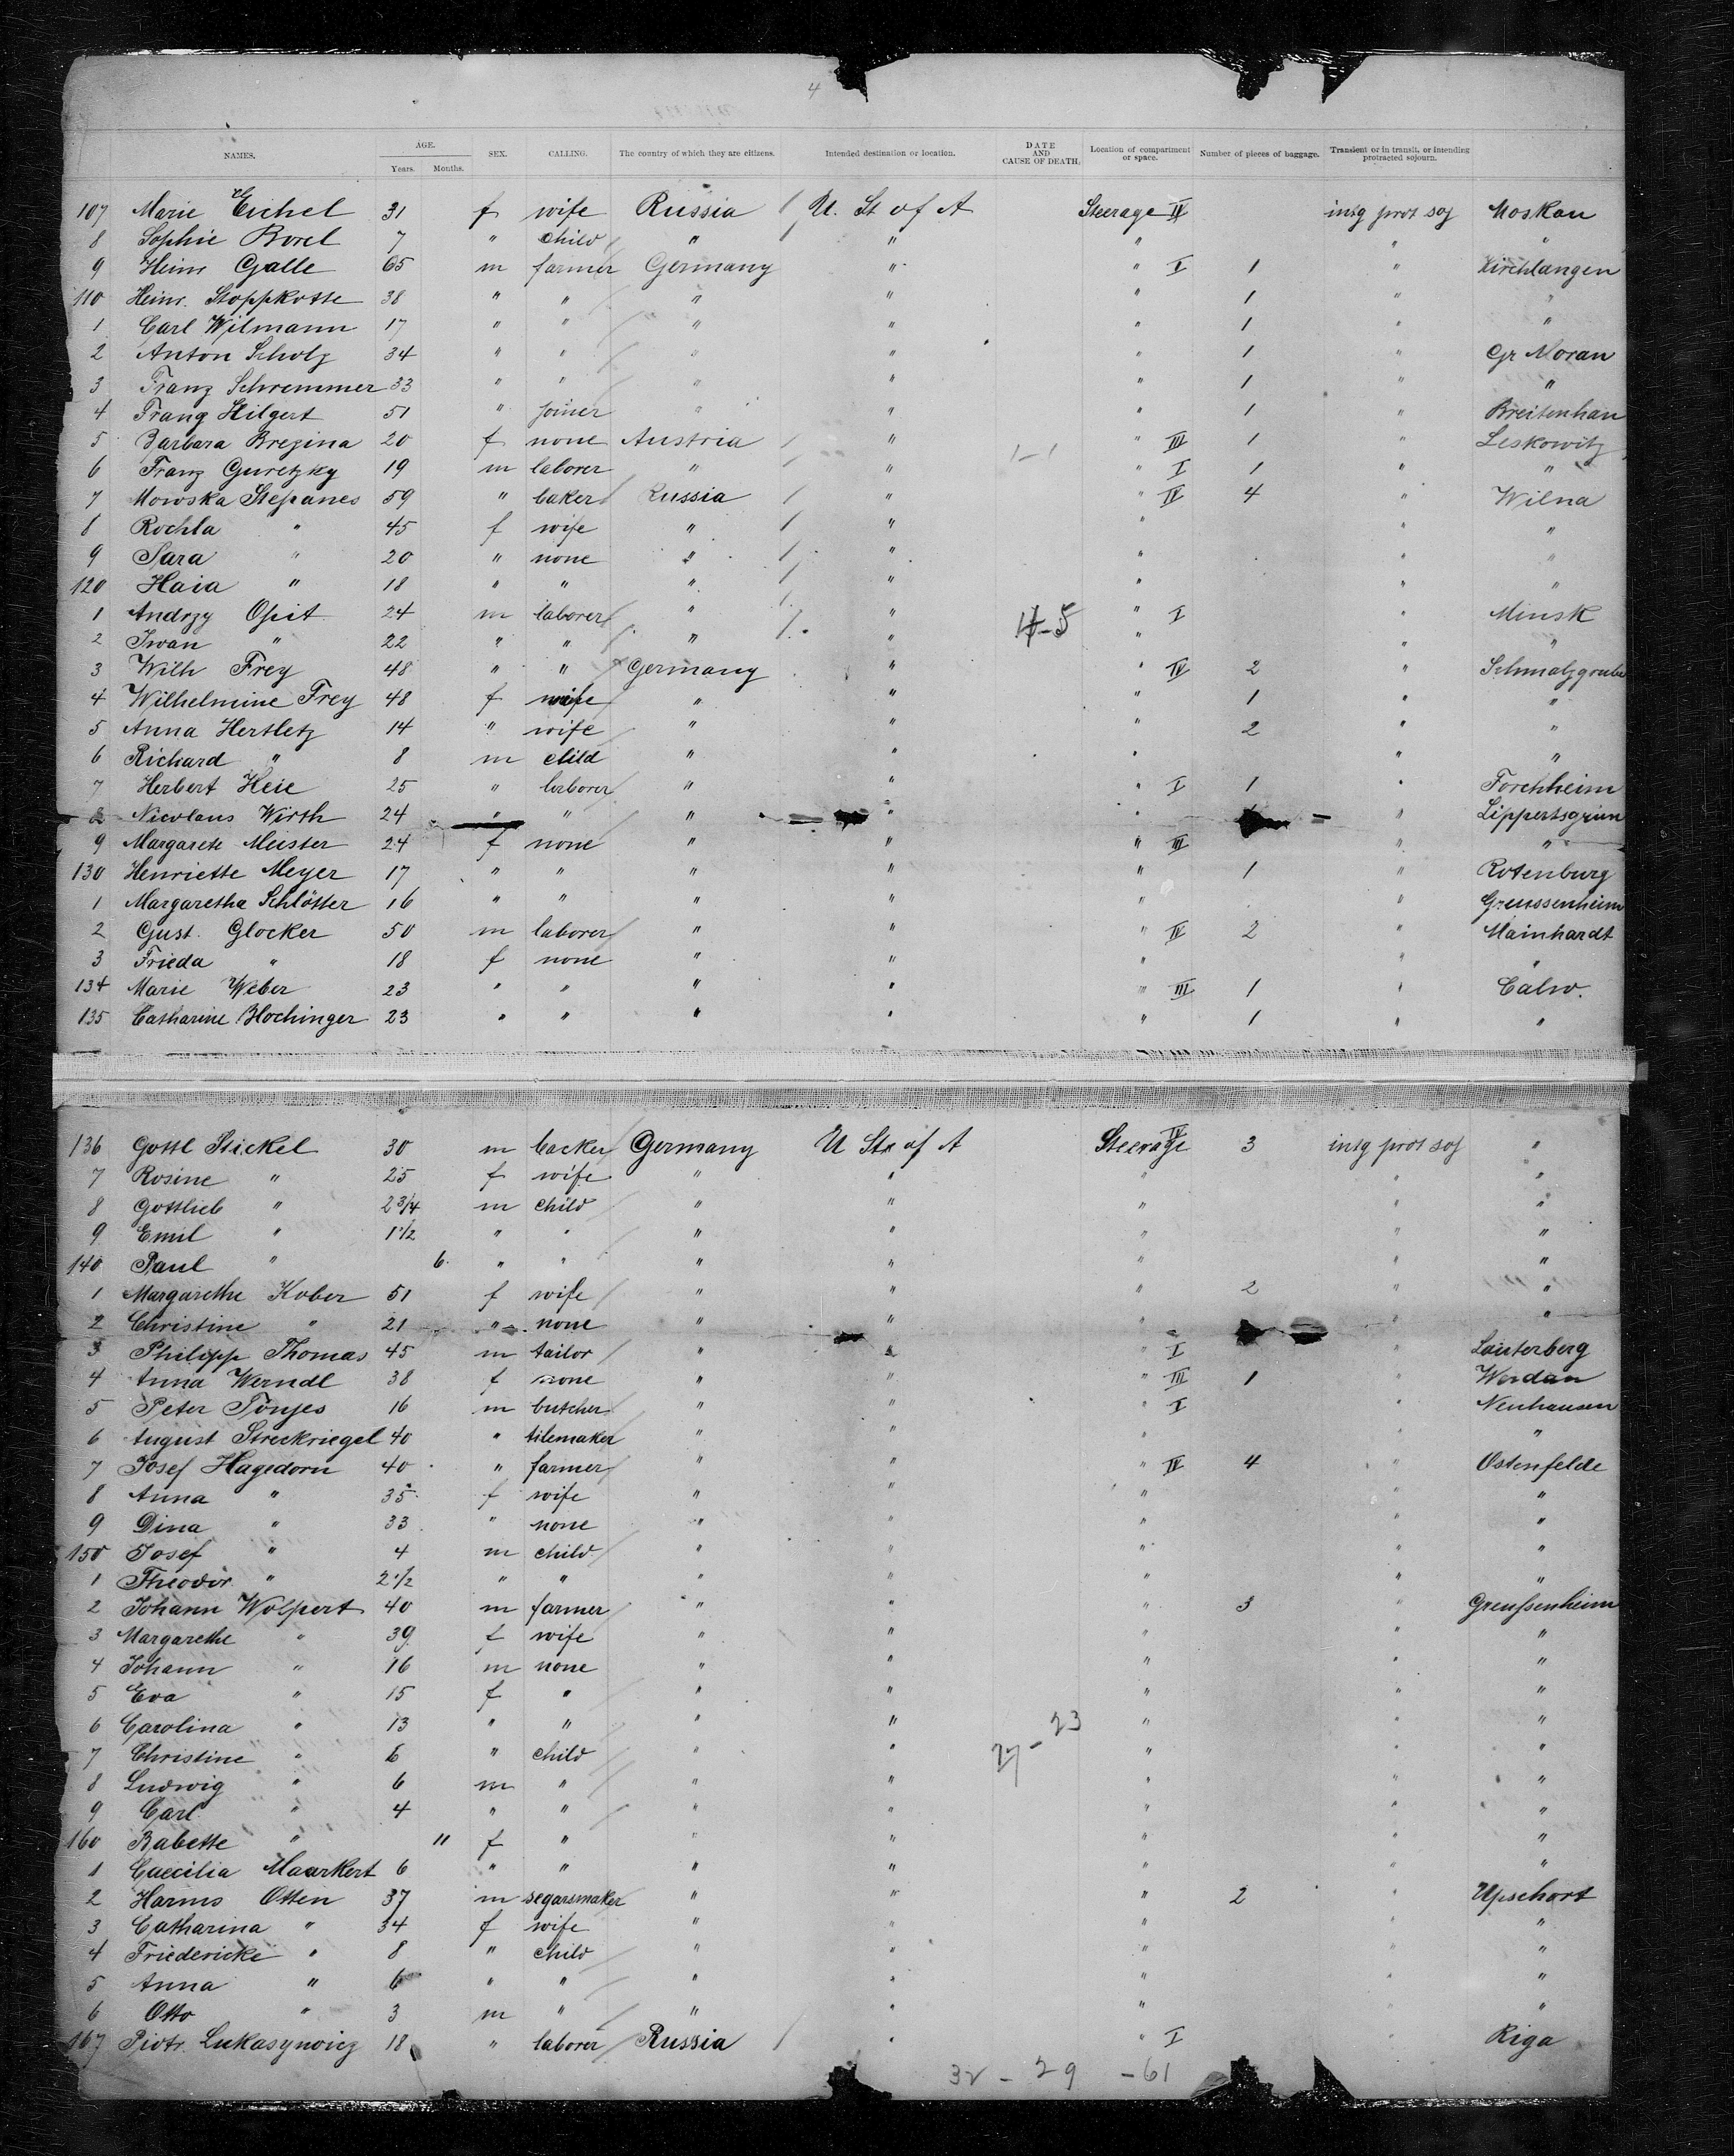 4
NAMES. AGE. Years. Months. SEX. CALLING. The country of which they are citizens. Intended destination or location. DATE AND CAUSE OF DEATH. Location of compartment or space. Number of pieces of baggage. Transient or in transit, or intending protracted sojourn.
107 Marie Eichel 31 f wife Russia U. St of A Steerage IV intg prot soj Moskau
8 Sophie Borel 7 " child " " " " "
9 Heinr Galle 65 m farmer Germany " " I 1 " Kirchlangen
110 Heinr. Stoppkotte 38 " " " " " 1 " "
1 Carl Wilmann 17 " " " " " 1 " "
2 Anton Scholz 34 " " " " " 1 " Gr Moran
3 Franz Schremmer 33 " " " " " 1 " "
4 Franz Hilgert 51 " joiner " " " 1 " Breitenhan
5 Barbara Brezina 20 f none Austria " 1-1 " III 1 " Leskowitz
6 Franz Guretzky 19 m laborer " " " I 1 " "
7 Mowska Stepanes 59 " baker Russia " " IV 4 " Wilna
8 Rochla " 45 f wife " " " " "
9 Sara " 20 " none " " " " "
120 Haia " 18 " " " " " " "
1 Andrzy Opit 24 m laborer " " " I " Minsk
2 Iwan " 22 " " " " " " "
3 Wilh Frey 48 " " Germany " " IV 2 " Schmalzgrube
4 Wilhelmine Frey 48 f wife " " " 1 " "
5 Anna Hertletz 14 " wife " " " 2 " "
6 Richard " 8 m child " " " " "
7 Herbert Heie 25 " laborer " " " I 1 " Forchheim
8 Nicolaus Wirth 24 " " " " " " Lippertsgrün
9 Margarete Meister 24 f none " " " III " "
130 Henriette Meyer 17 " " " " " 1 " Rotenburg
1 Margaretha Schlötter 16 " " " " " " Greussenheim
2 Gust. Glocker 50 m laborer " " " IV 2 " Mainhardt
3 Frieda " 18 f none " " " " "
134 Marie Weber 23 " " " " " III 1 " Calw.
135 Catharine Blochinger 23 " " " " " 1 " "
136 Gottl Stickel 30 m backer Germany U Sts of A Steerage IV 3 intg prot soj "
7 Rosine " 25 f wife " " " " "
8 Gottlieb " 2 3/4 m child " " " " "
9 Emil " 1 1/2 " " " " " " "
140 Paul " 6 " " " " " " "
1 Margarethe Kober 51 f wife " " " 2 " "
2 Christine " 21 " none " " " " "
3 Philipp Thomas 45 m tailor " " " I " Lauterberg
4 Anna Werndl 38 f none " " " III 1 " Werdan
5 Peter Tönjes 16 m butcher " " " I " Neuhausen
6 August Streckriegel 40 " tilemaker " " " " "
7 Josef Hagedorn 40 " farmer " " " IV 4 " Ostenfelde
8 Anna " 35 f wife " " " " "
9 Dina " 33 " none " " " " "
150 Josef " 4 m child " " " " "
1 Theodor " 2 1/2 " " " " " " "
2 Johann Wolpert 40 m farmer " " " 3 " Greußenheim
3 Margarethe " 39 f wife " " " " "
4 Johann " 16 m none " " " " "
5 Eva " 15 f " " " " " "
6 Carolina " 13 " " " " 27-23 " " "
7 Christine " 6 " child " " " " "
8 Ludwig " 6 m " " " " " "
9 Carl " 4 " " " " " " "
160 Babette " 11 f " " " " " "
1 Caecilia Maarkert 6 " " " " " " "
2 Harms Otten 37 m segarsmaker " " " 2 " Upschort
3 Catharina " 34 f wife " " " " "
4 Friedericke " 8 " child " " " " "
5 Anna " 6 " " " " " " "
6 Otto " 3 m " " " " " "
167 Piotr. Lukasynoicz 18 " laborer Russia " " I " Riga
32 - 29 - 61